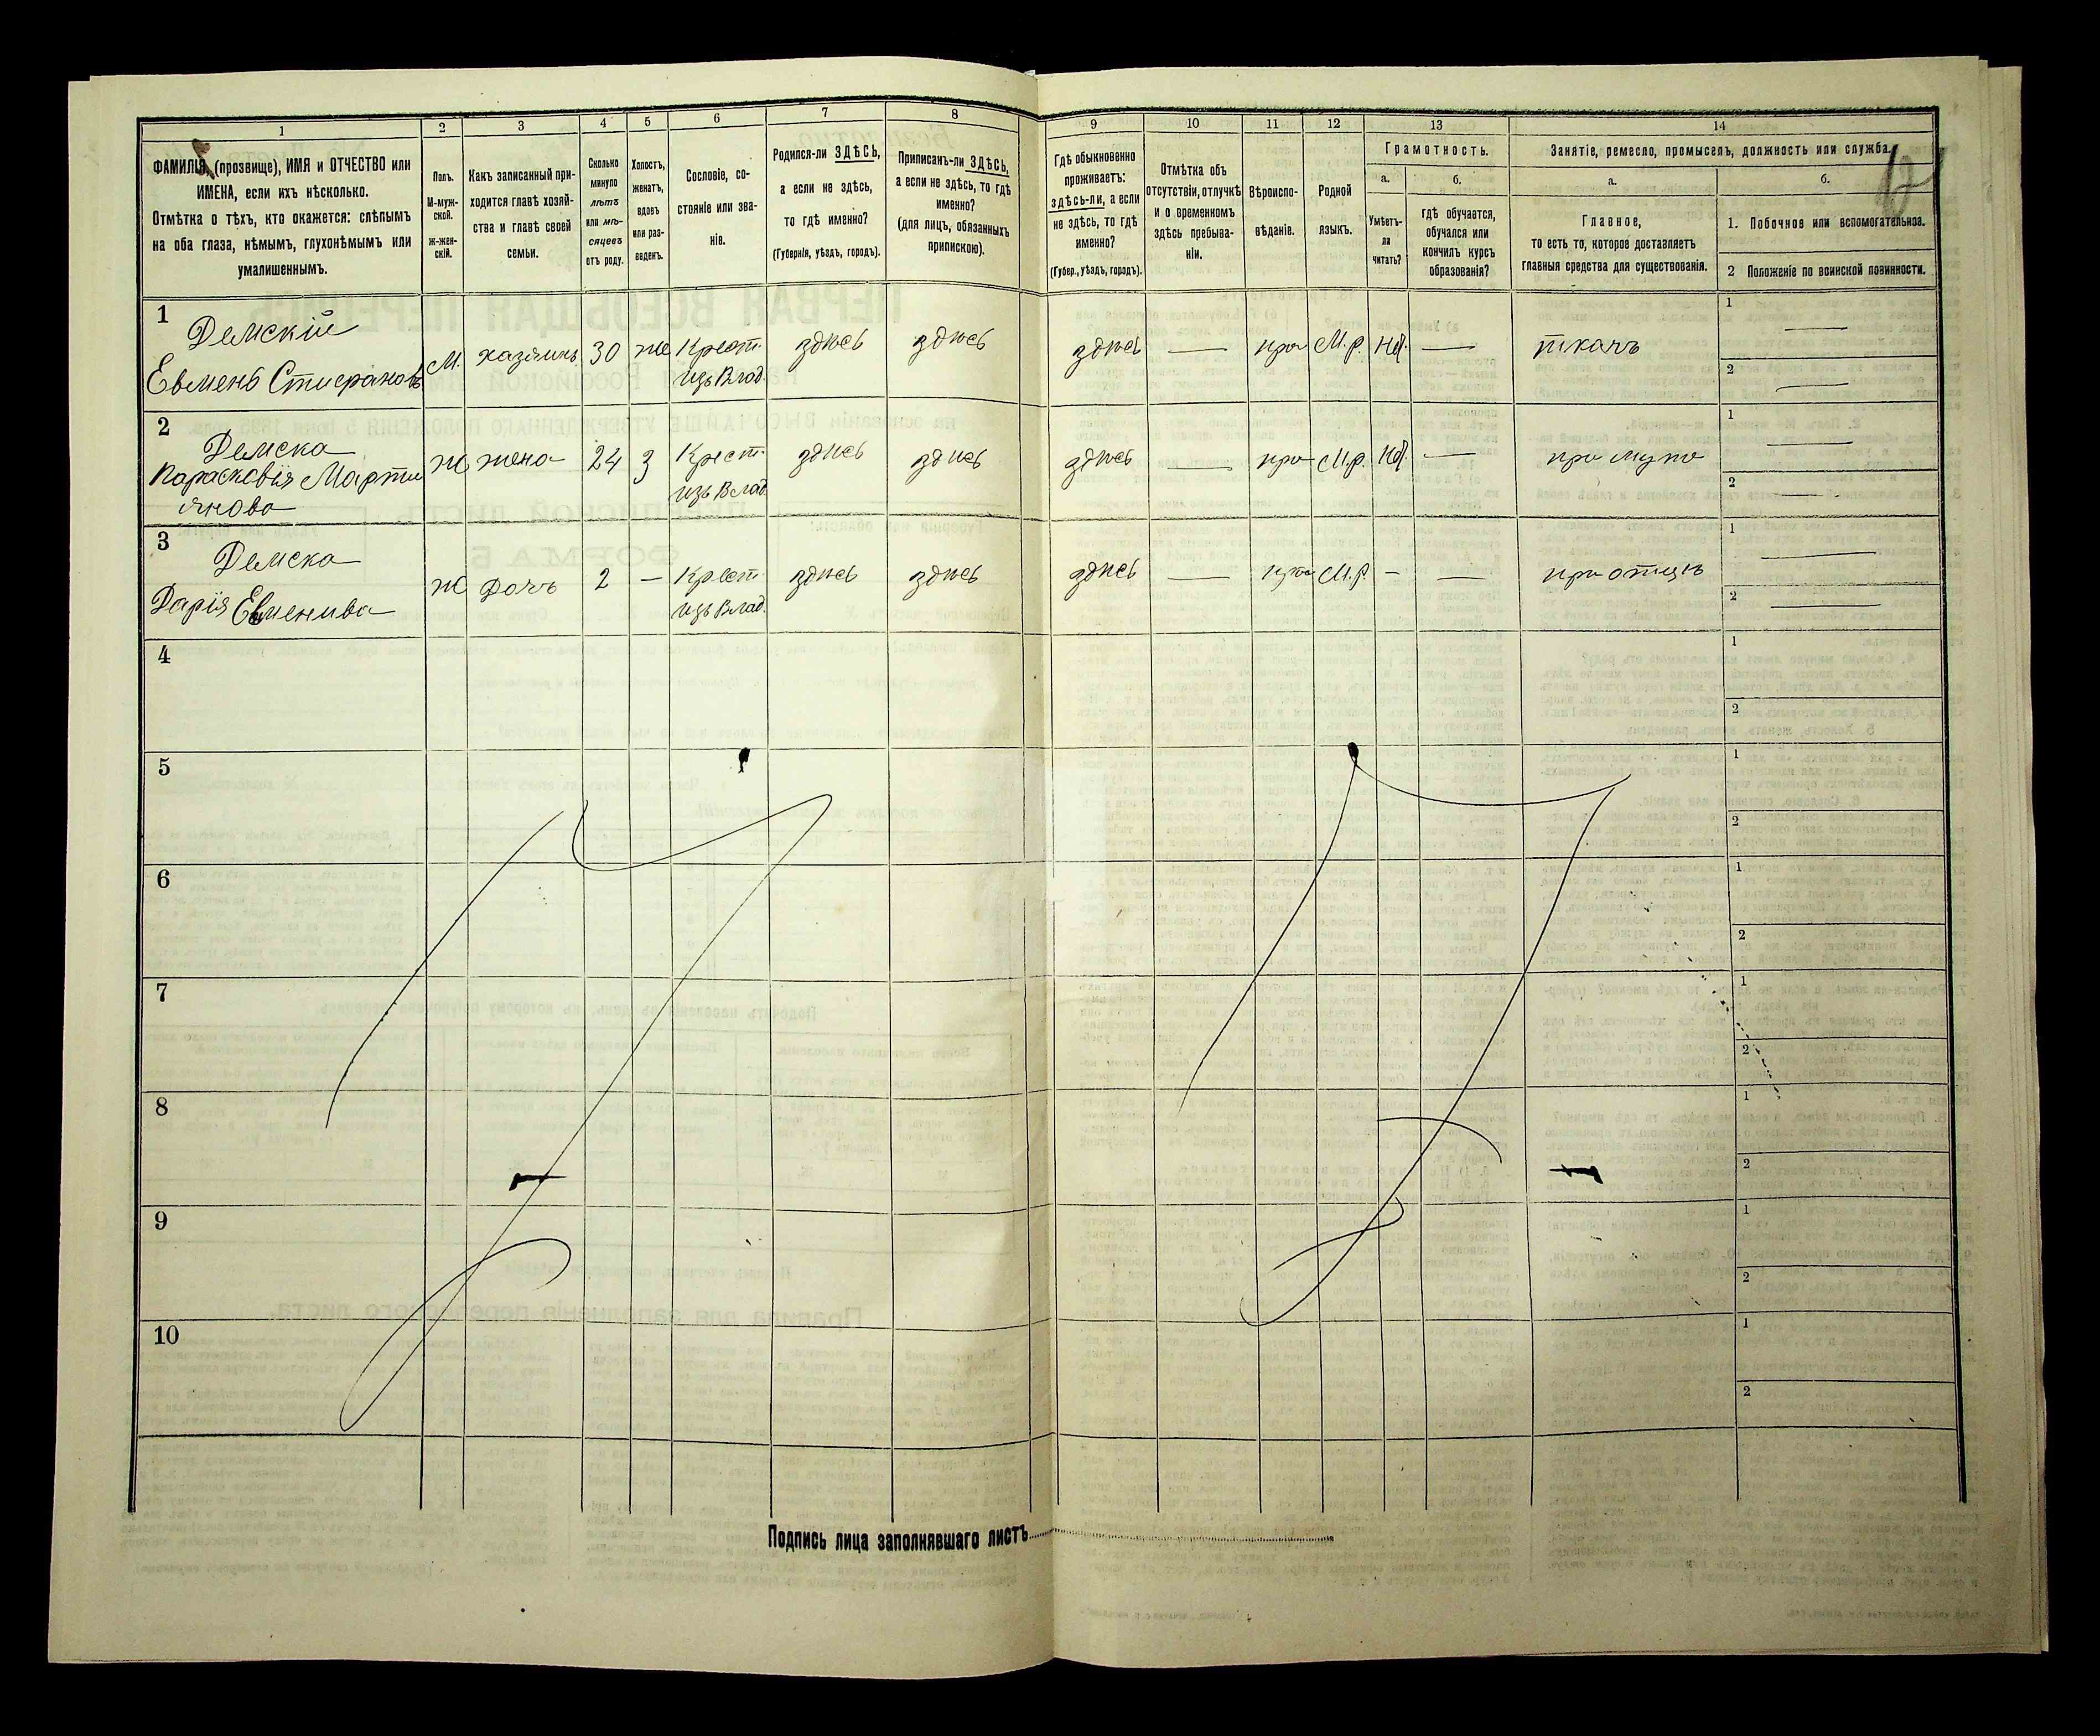 1 2 3 4 5 6 7 8 9 10 11 12 13 14
ФАМИЛІЯ, (прозвище), ИМЯ и ОТЧЕСТВО или
ИМЕНА, если ихъ нѣсколько.
Отмѣтка о тѣхъ, кто окажется: слѣпымъ
на оба глаза, нѣмымъ, глухонѣмымъ или
умалишеннымъ.
Полъ.
М-муж-
ской.
Ж-жен-
скій.
Какъ записанный при-
ходится главѣ хозяй-
ства и главѣ своей
семьи.
Сколько
минуло
лѣтъ
или мѣ-
сяцевъ
отъ роду.
Холостъ,
женатъ,
вдовъ
или раз-
веденъ.
Сословіе, со-
стояніе или зва-
ніе.
Родился-ли ЗДѢСЬ,
а если не здѣсь,
то гдѣ именно?
(Губернія, уѣздъ, городъ).
Приписанъ-ли ЗДѢСЬ,
а если не здѣсь, то гдѣ
именно?
(для лицъ, обязанныхъ
припискою).
Гдѣ обыкновенно
проживаетъ:
здѣсь-ли, а если
не здѣсь, то гдѣ
именно?
(Губер., уѣздъ, городъ).
Отмѣтка объ
отсутствіи, отлучкѣ
и о временномъ
здѣсь пребыва-
ніи.
Вѣроиспо-
вѣданіе.
Родной
языкъ.
Грамотность.
а.
Умѣетъ-
ли
читать?
б.
гдѣ обучается,
обучался или
кончилъ курсъ
образованія?
Занятіе, ремесло, промыселъ, должность или служба.
а.
Главное,
то есть то, которое доставляетъ
главныя средства для существованія.
б.
1. Побочное или вспомогательное.
2 Положеніе по воинской повинности.
1 Демскій
Евмень Стифановъ М. хазяинъ 30 же Крест. изъ Влад. здѣсь здѣсь здѣсь — пра М.р. Нѣ. — ткачъ 1 — 2 —
2 Демска
Параскевія Марти
янова Ж жена 24 З Крест. изъ Влад. здѣсь здѣсь здѣсь — пра М.р. Нѣ. — при мужѣ 1 — 2 —
3 Демска
Дарія Евменива Ж Дочъ 2 — Крест. изъ Влад. здѣсь здѣсь здѣсь — пра М.р. — — при отцѣ 1 — 2 —
4 1 2
5 1 2
6 1 2
7 1 2
8 1 2
9 1 2
10 1 2
Подпись лица заполнявшаго листъ